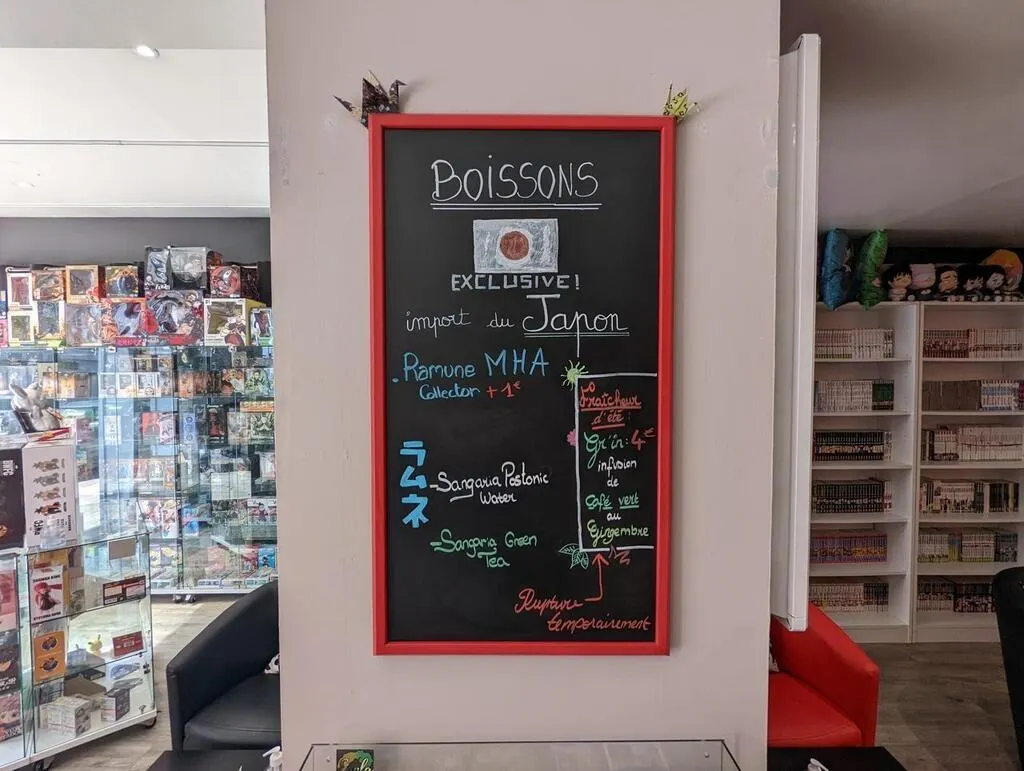 BOISSONS
EXCLUSIVE!
import du Japon
. Ramune MHA
Collector + 1€
ラムネ
- Sangaria Postonic
Water
- Sangaria Green
Tea
Fraîcheur
d'été :
Gr'in : 4€
infusion
de
Café vert
au
Gingembre
Rupture
temporairement